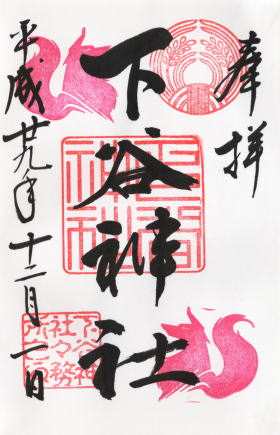 奉拝
下谷神社
平成廿九年十二月一日
下谷神社
下谷神社々務所之印